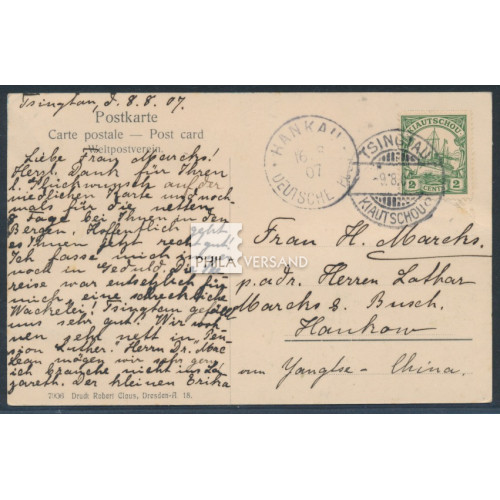 Tsingtau, d. 8.8.07.
Postkarte
Carte postale — Post card
Weltpostverein.
Liebe Frau Marchs!
Herzl. Dank für Ihren
l. Glückwunsch auf der
niedlichen Karte und noch-
mals für die netten
8 Tage bei Ihnen in den
Bergen. Hoffentlich geht
es Ihnen jetzt recht gut!
Ich fasse mich
noch in Geduld. Die
reise war entsetzlich für
mich, eine schreckliche
Wackelei! Tsingtau gefällt
uns sehr gut. Wir woh-
nen jetzt nett in Pen-
sion Luther. Herrn Dr. Mac
Lean mögen wir sehr gern
ich brauche nicht ins La-
zareth. Der kleinen Erika
7936 Druck Robert Claus, Dresden-A. 16.
HANKAU
16
07
DEUTSCHE
TSINGTAU
-9.8.
KIAUTSCHOU
KIAUTSCHOU
2 CENTS 2
PHILA VERSAND
Frau H. Marchs.
p. adr. Herren Lothar
Marchs & Busch.
Hankow
am Yangtse - China.